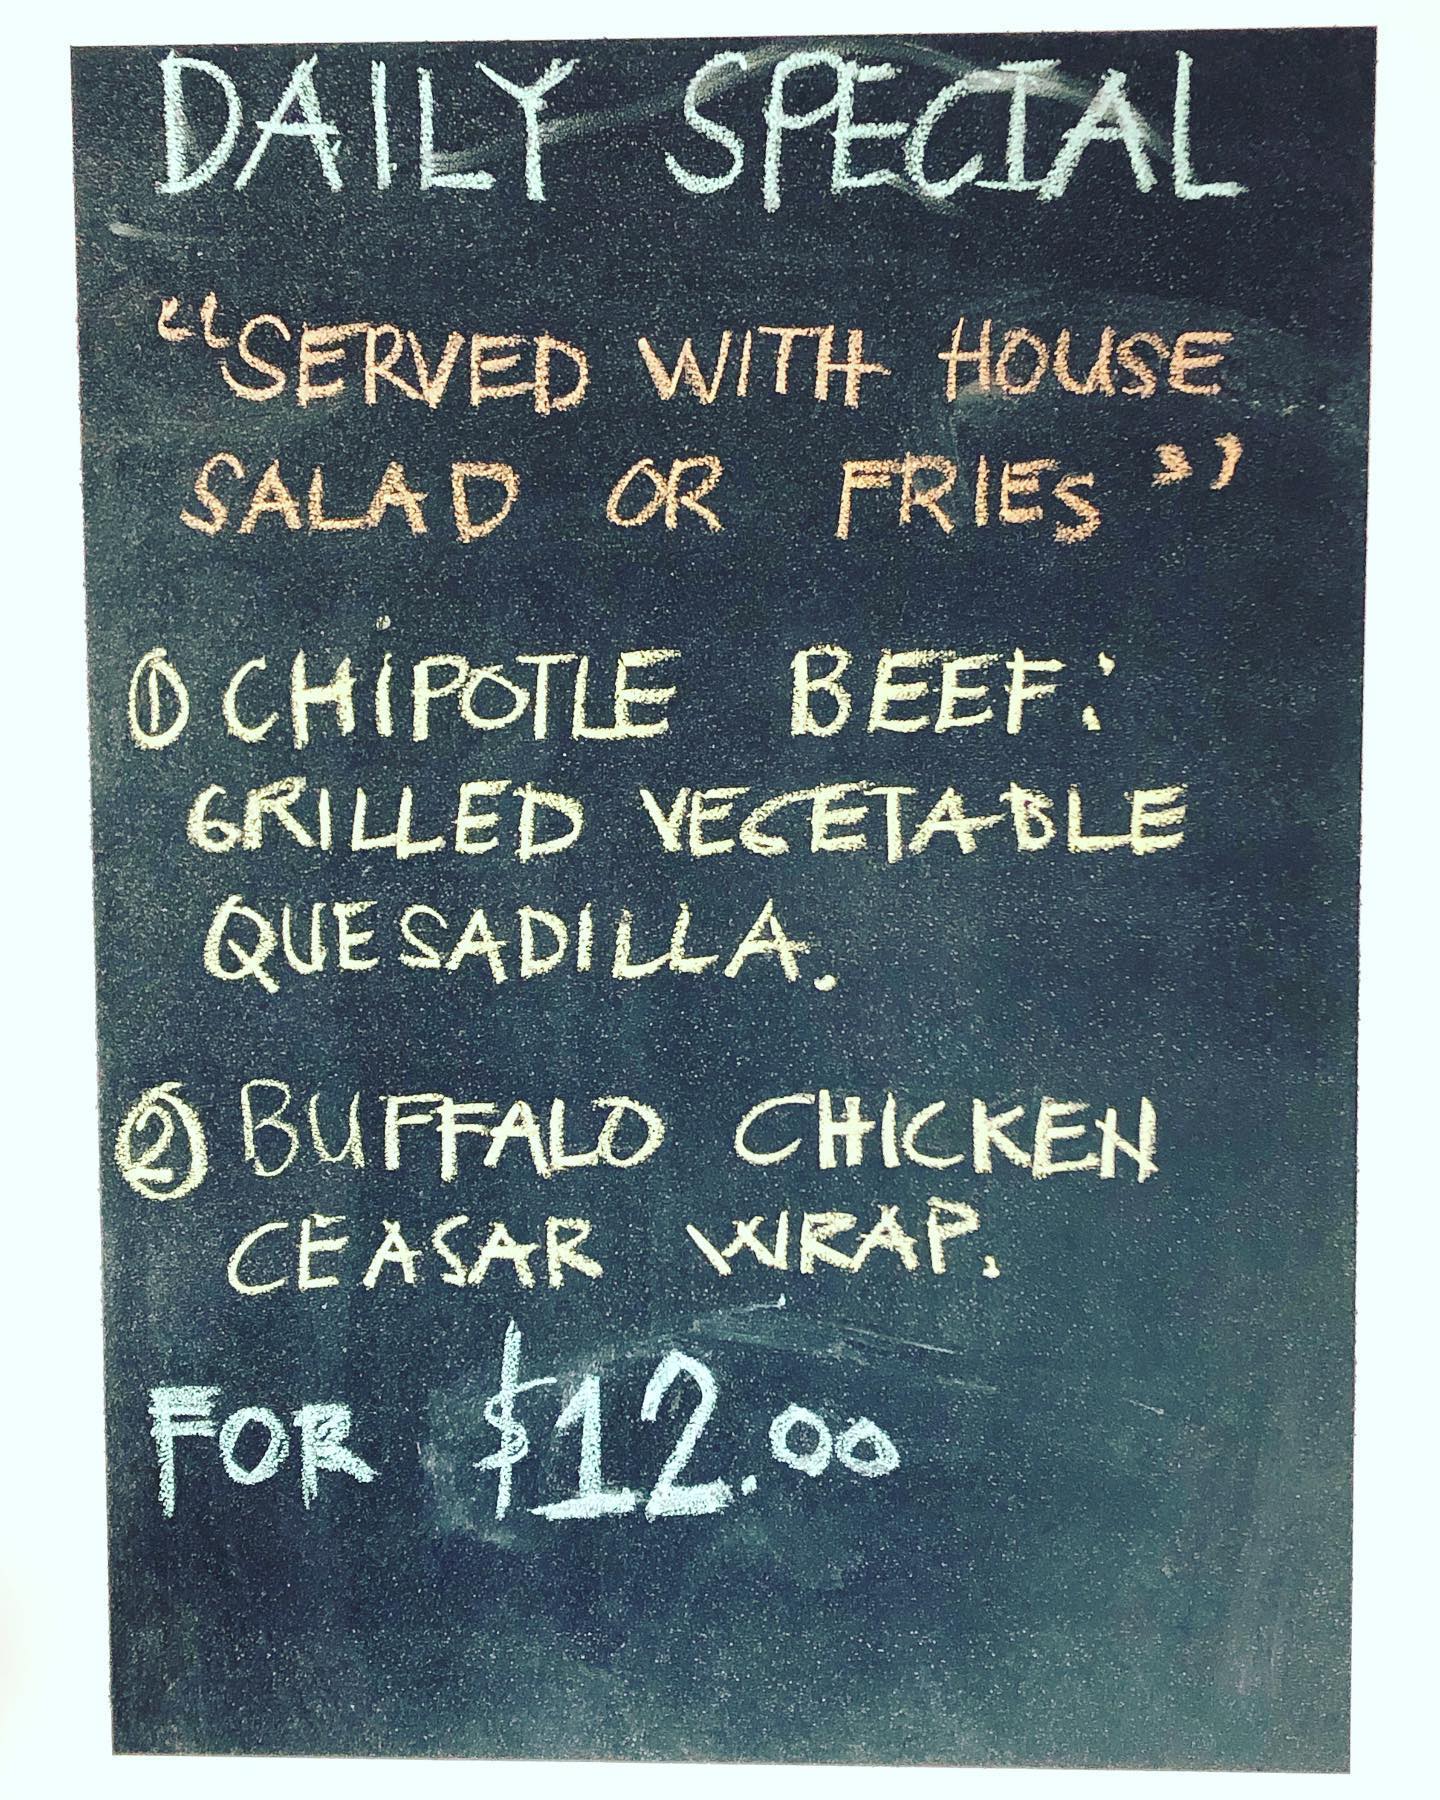 DAILY SPECIAL
“SERVED WITH HOUSE
SALAD OR FRIES”
① CHiPOTLE BEEF:
GRILLED VEGETABLE
QUESADILLA.
② BUFFALO CHICKEN
CEASAR WRAP.
FOR $12.00